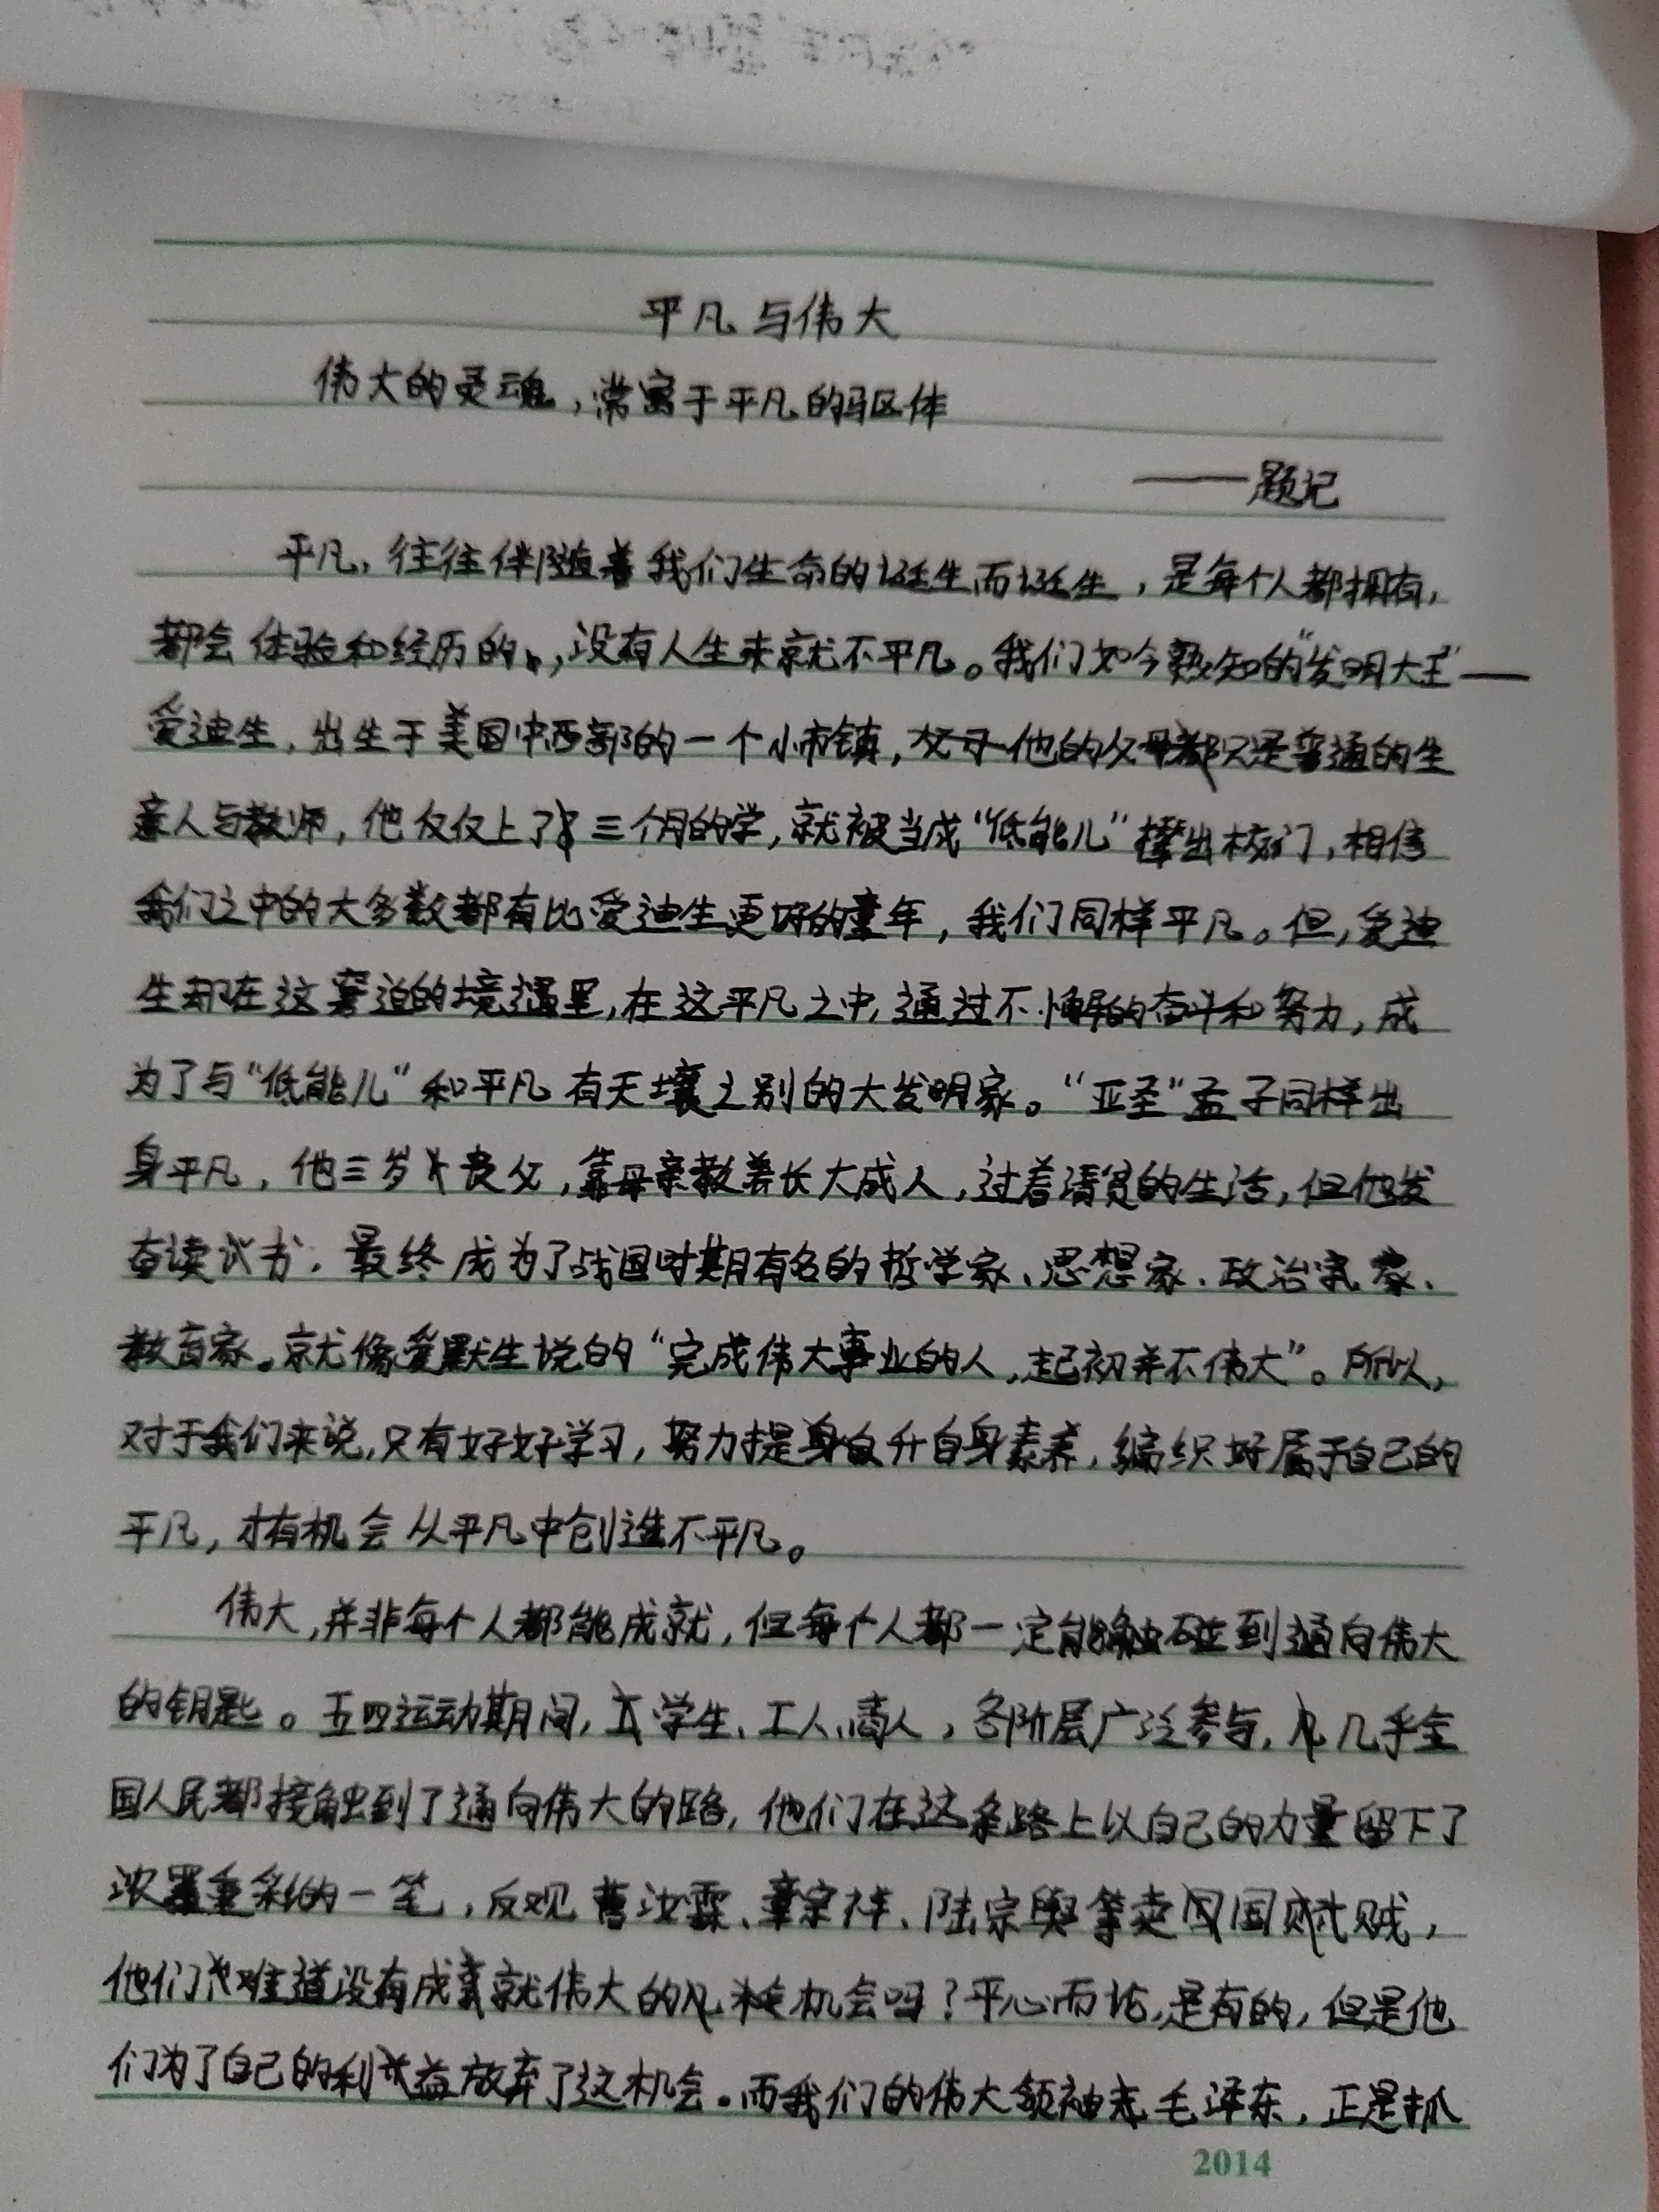 平凡与伟大
伟大的灵魂，常寓于平凡的躯体
——题记
平凡，往往伴随着我们生命的诞生而诞生，是每个人都拥有，
都会体验和经历的，没有人生来就不平凡。我们如今熟知的“发明大王”——
爱迪生，出生于美国中西部的一个小市镇，他的父母都只是普通的生
意人与教师，他仅仅上了三个月的学，就被当成“低能儿”撵出校门，相信
我们之中的大多数都有比爱迪生更好的童年，我们同样平凡。但，爱迪
生却在这窘迫的境遇里，在这平凡之中，通过不懈的奋斗和努力，成
为了与“低能儿”和平凡有天壤之别的大发明家。“亚圣”孟子同样出
身平凡，他三岁丧父，靠母亲教养长大成人，过着清贫的生活，但他发
奋读书，最终成为了战国时期有名的哲学家、思想家、政治家、
教育家。就像爱默生说的“完成伟大事业的人，起初并不伟大”。所以，
对于我们来说，只有好好学习，努力提升自身素养，编织好属于自己的
平凡，才有机会从平凡中创造不平凡。
伟大，并非每个人都能成就，但每个人都一定能触碰到通向伟大
的钥匙。五四运动期间，学生、工人、商人，各阶层广泛参与，几乎全
国人民都接触到了通向伟大的路，他们在这条路上以自己的力量留下了
浓墨重彩的一笔，反观曹汝霖、章宗祥、陆宗舆等卖国贼，
他们难道没有成就伟大的机会吗？平心而论，是有的，但是他
们为了自己的利益放弃了这机会。而我们的伟大领袖毛泽东，正是抓
2014